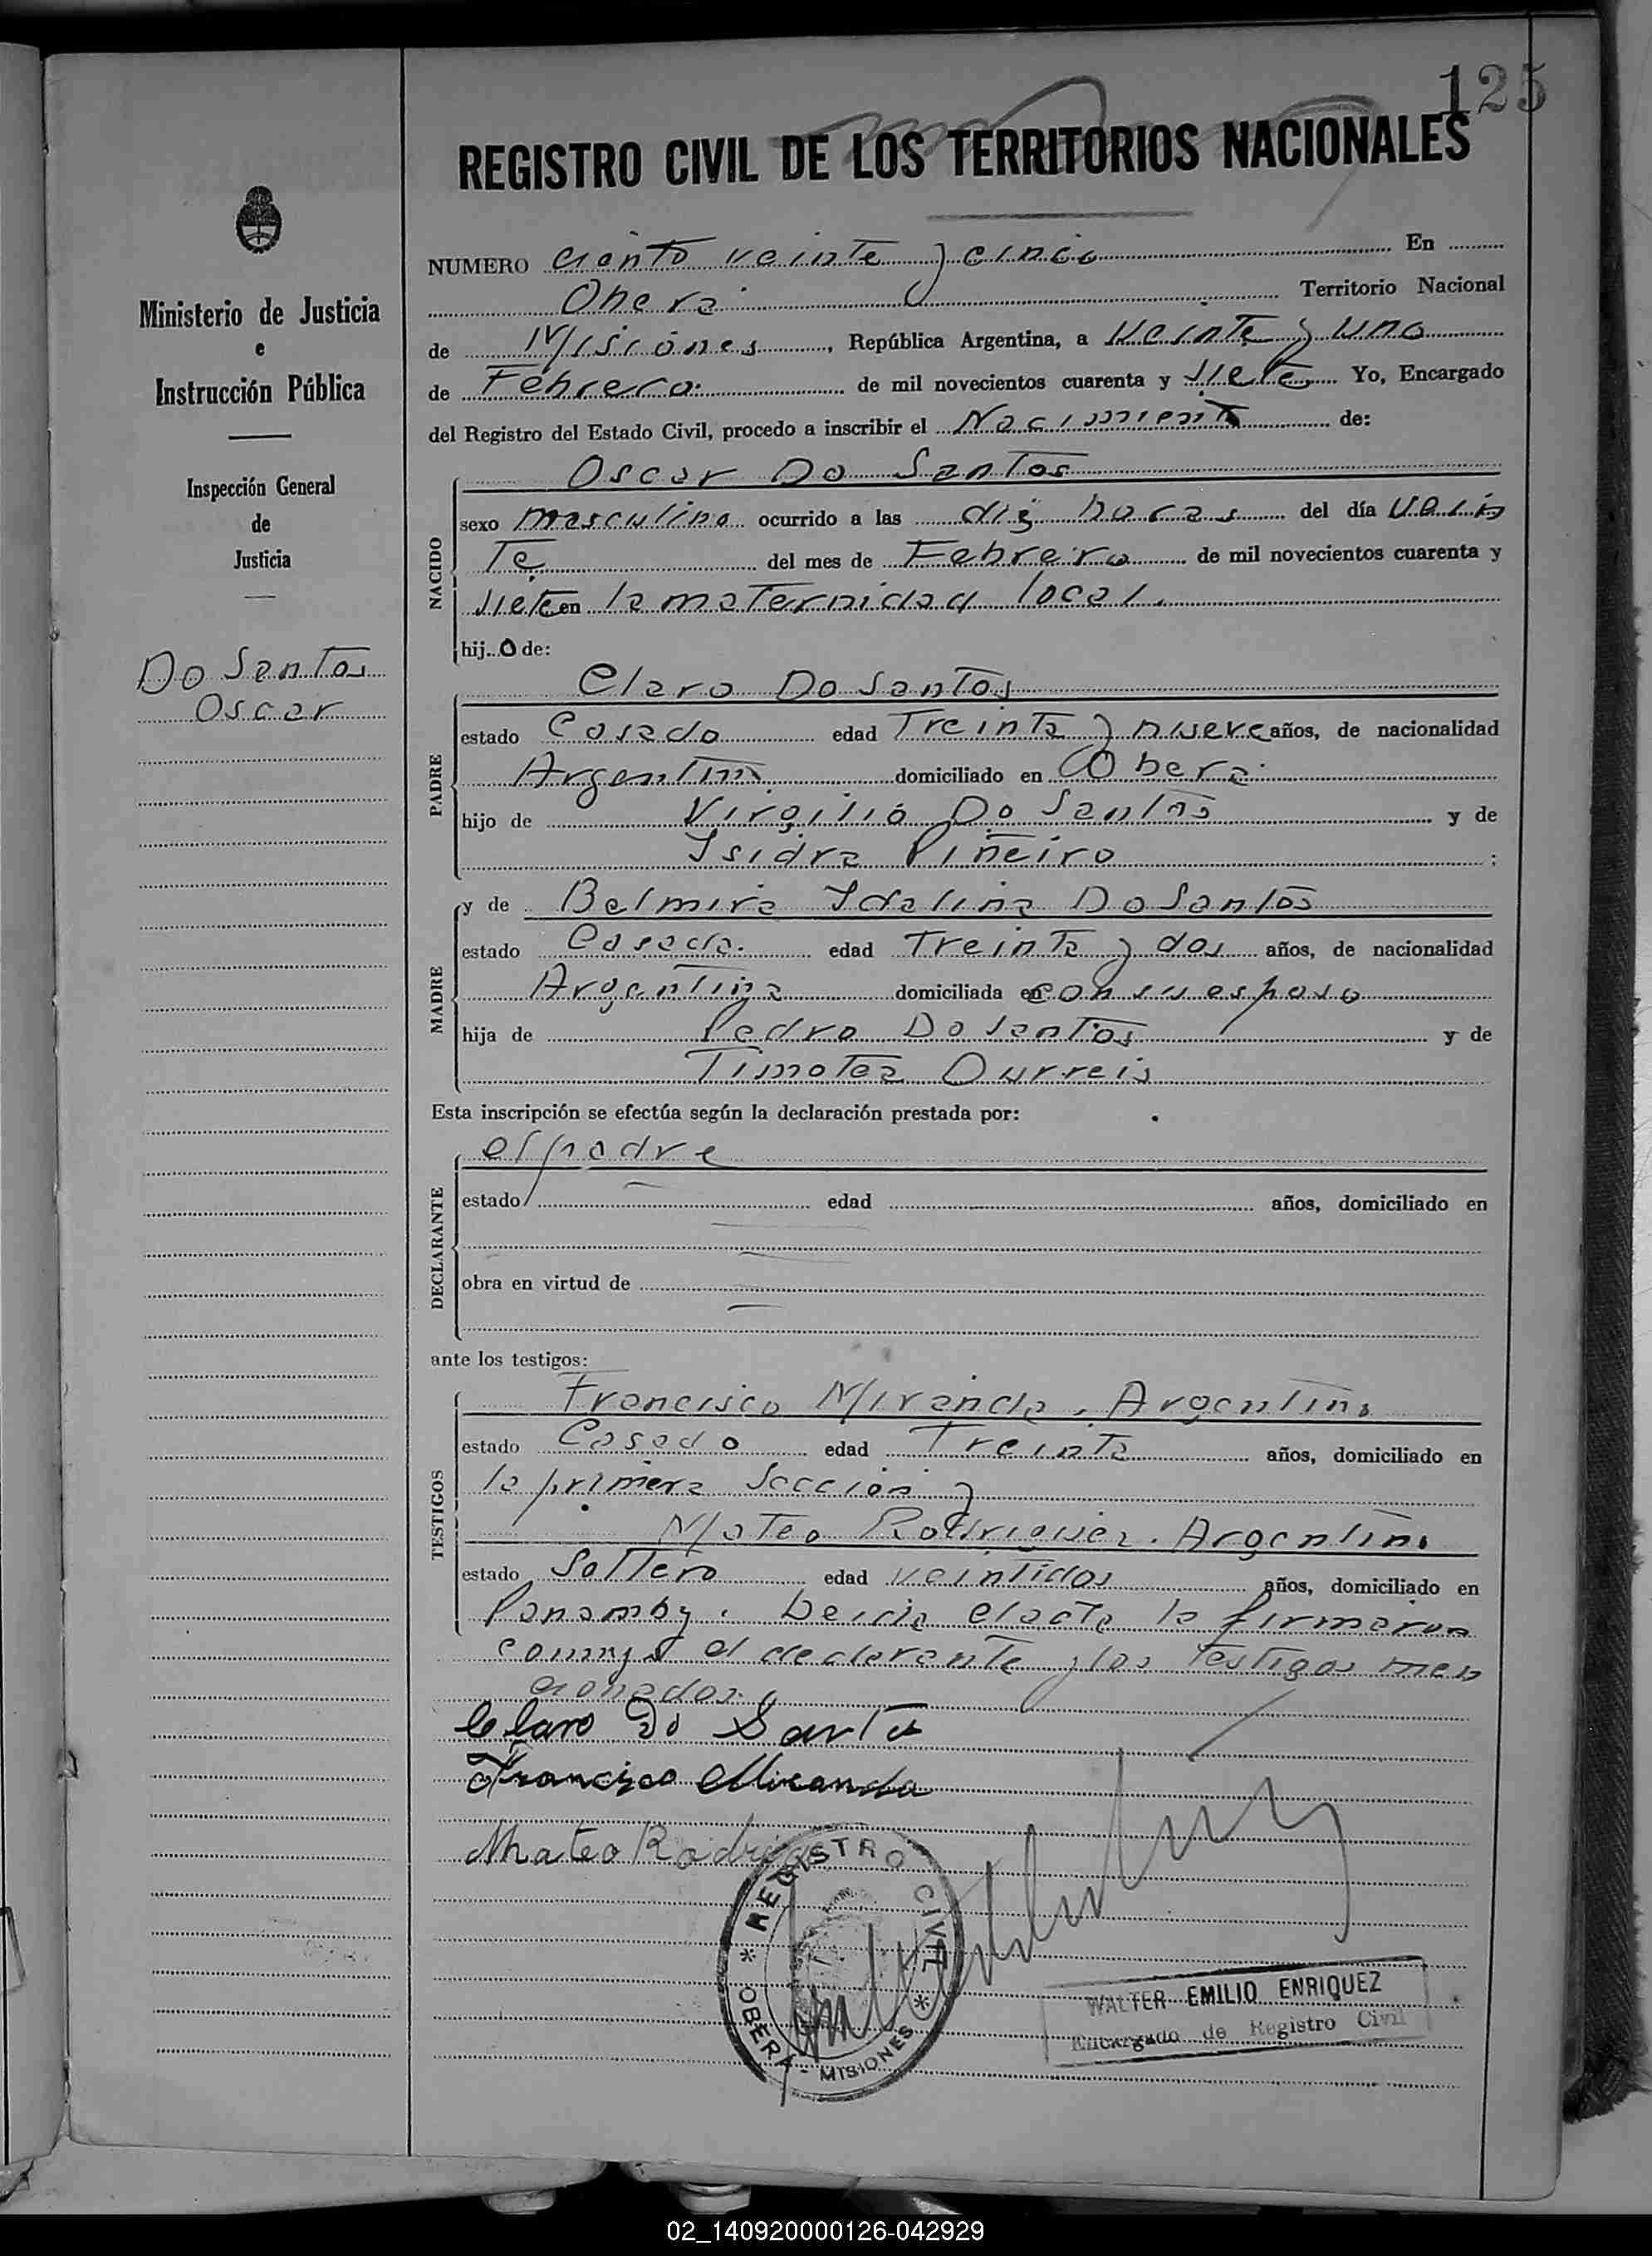 125
REGISTRO CIVIL DE LOS TERRITORIOS NACIONALES
Ministerio de Justicia
e
Instrucción Pública
Inspección General
de
Justicia
Do Santos
Oscar
NUMERO ciento veinte y cinco En
Oberá Territorio Nacional
de Misiones, República Argentina, a veinte y uno
de Febrero de mil novecientos cuarenta y siete Yo, Encargado
del Registro del Estado Civil, procedo a inscribir el Nacimiento de:
NACIDO
Oscar Do Santos
sexo masculino ocurrido a las diez horas del día vein
te del mes de Febrero de mil novecientos cuarenta y
siete en la maternidad local.
hijo de:
PADRE
Claro Do Santos
estado Casado edad Treinta y nueve años, de nacionalidad
Argentina domiciliado en Oberá
hijo de Virgilio Do Santos y de
Isidra Piñeiro ;
MADRE
y de Belmira Idalina Do Santos
estado Casada edad Treinta y dos años, de nacionalidad
Argentina domiciliada en con su esposo
hija de Pedro Do Santos y de
Timotea Durreis
Esta inscripción se efectúa según la declaración prestada por:
DECLARANTE
el padre
estado edad años, domiciliado en
obra en virtud de
ante los testigos:
TESTIGOS
Francisco Miranda, Argentino
estado Casado edad Treinta años, domiciliado en
la primera Sección y
Mateo Rodriguez. Argentino
estado Soltero edad veintidos años, domiciliado en
Panamby. Leida el acta la firmaron
conmigo el declarante y los testigos men
cionados.
Claro Do Santos
Francisco Miranda
Mateo Rodriguez
REGISTRO CIVIL
OBERÁ - MISIONES
WALTER EMILIO ENRIQUEZ
Encargado de Registro Civil
02_140920000126-042929